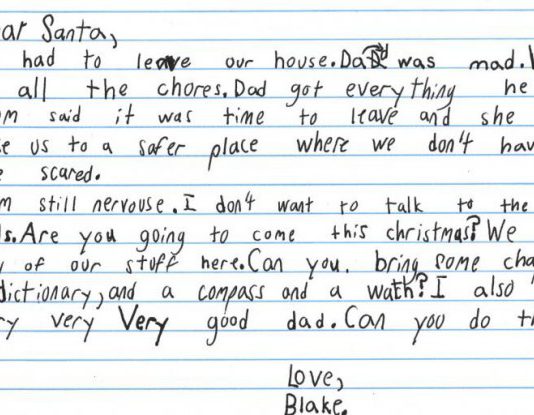 ar Santa,
had to leave our house.Dad was mad.
all the chores.Dad got everything he
m said it was time to leave and she
e us to a safer place where we don't hav
e scared.
m still nervouse.I don't want to talk to the
s.Are you going to come this christmas? We
of our stuff here.Can you. bring some cha
dictionary,and a compass and a wath? I also
ry very very good dad.Can you do th
Love,
Blake.